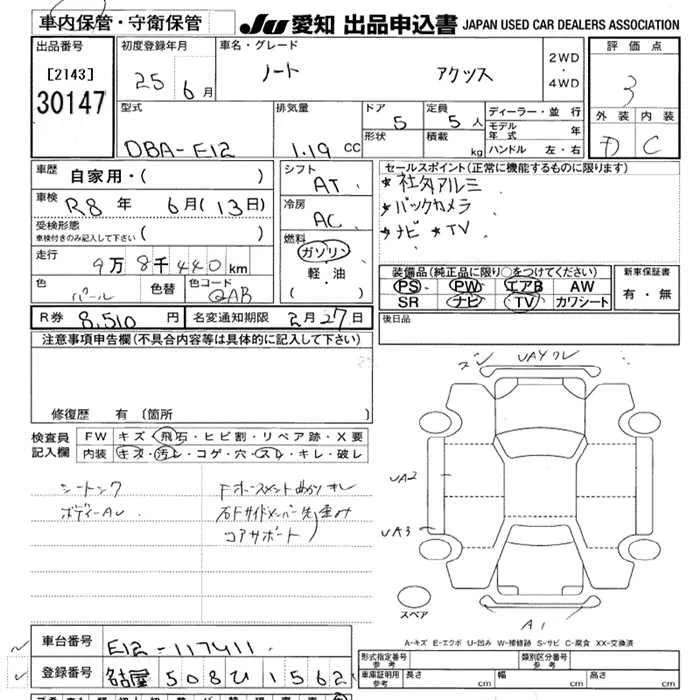 車内保管・守衛保管
JU 愛知 出品申込書 JAPAN USED CAR DEALERS ASSOCIATION
出品番号
[2143]
30147
初度登録年月
25 6月
車名・グレード
ノート アクシス
2WD・4WD
評価点
3
外装 内装
D C
型式
DBA-E12
排気量
1.19 CC
ドア 5
形状
定員 5人
積載 kg
ディーラー・並行
モデル年式 年
ハンドル 左・右
車歴 自家用・( )
車検 R8年 6月(13日)
受検形態
車検付きのみ記入して下さい ( )
走行 9万8千440km
色 パール 色替 色コード QAB
シフト AT
冷房 AC
燃料
ガソリン
軽・油
( )
セールスポイント(正常に機能するものに限ります)
*社外アルミ
*バックカメラ
*ナビ *TV
装備品(純正品に限り○をつけてください)
PS PW エアB AW
SR ナビ TV カワシート
新車保証書
有・無
R券 8,510円 名変通知期限 2月27日
後日品
注意事項申告欄(不具合内容等は具体的に記入して下さい)
修復歴 有 (箇所
検査員記入欄
FW キズ・飛石・ヒビ割・リペア跡・X要
内装 キズ・汚レ・コゲ・穴・スレ・キレ・破レ
UA2
UA3
A1
スペア
A-キズ E-エクボ U-凹み W-補修跡 S-サビ C-腐食 XX-交換済
車台番号 E12-117411
登録番号 名古屋 508 ひ 1562
形式指定番号 類別区分番号
車庫証明用参考 長さ cm 幅 cm 高さ cm